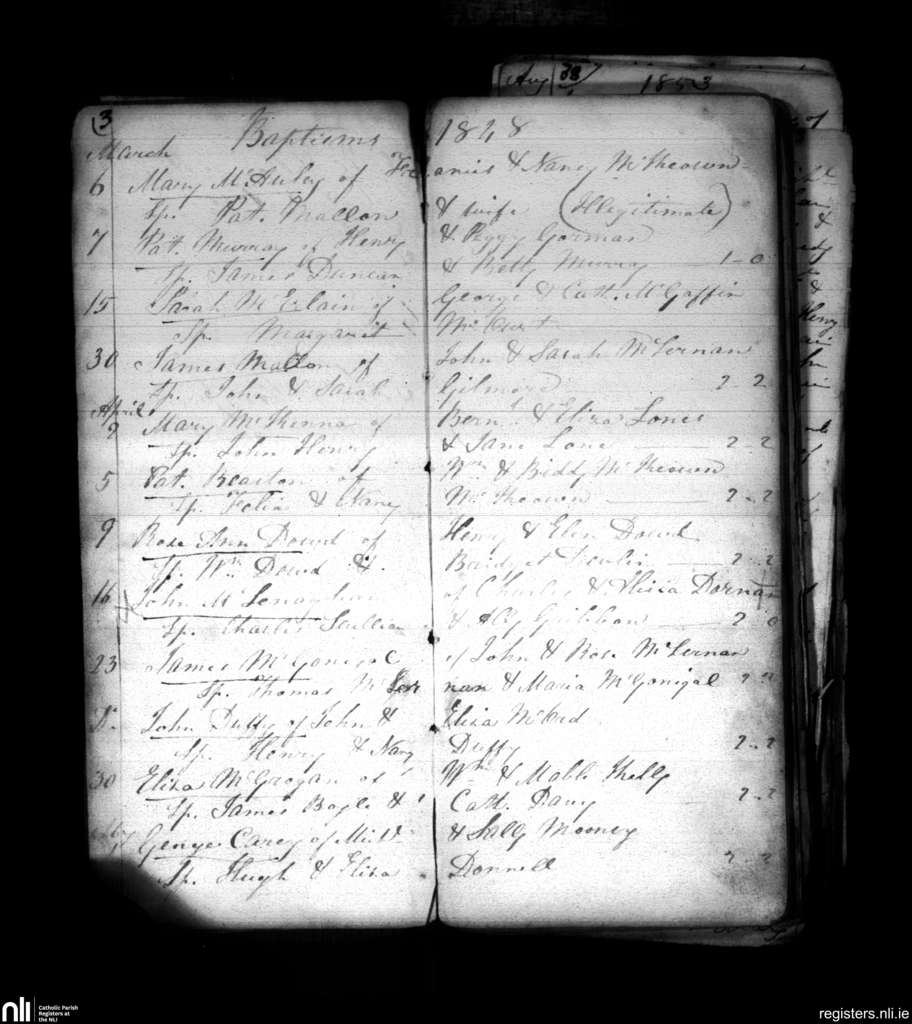 Aug 38 1853
3
Baptisms 1848
March
6 Mary McAuley of Francis & Nancy McKeown
Sp. Pat. Mallon & wife (Illegitimate)
7 Pat. Murray of Henry & Peggy Gorman
Sp. James Duncan & Betty Murray 1-0
15 Sarah McErlain of George & Cath. McGaffin
Sp. Margaret
30 James Mallon of John & Sarah McLernan
Sp. John & Sarah Gilmore 2-2
April
2 Mary McKenna of Bernd. & Eliza Lones
Sp. John Henry & Jane Lone 2-2
5 Pat. of Wm. & Biddy McKeown
Sp. Felix & Nancy McKeown 2-2
9 Rose Ann Dowd of Henry & Elen Dowd
Sp. Wm. Dowd & Bridget Devlin 2-2
16 John McLenaghan of Charles & Dornan
Sp. Charles Scullion & Ally Gribbon 2 0
23 James McGonigal of John & Rose McLernan
Sp. Thomas McLernan & Maria McGonigal 2-2
Do. John Duffy of John & Eliza McCord
Sp. Henry & Nancy Duffy 2-2
30 Eliza McGrogan of Wm. & Mable Kelly
Sp. James Bogle & Cath. Dany 2-2
George Carey of & Sally Mooney
Sp. Hugh & Eliza Donnell 2-2
nli Catholic Parish
Registers at
the NLI
registers.nli.ie